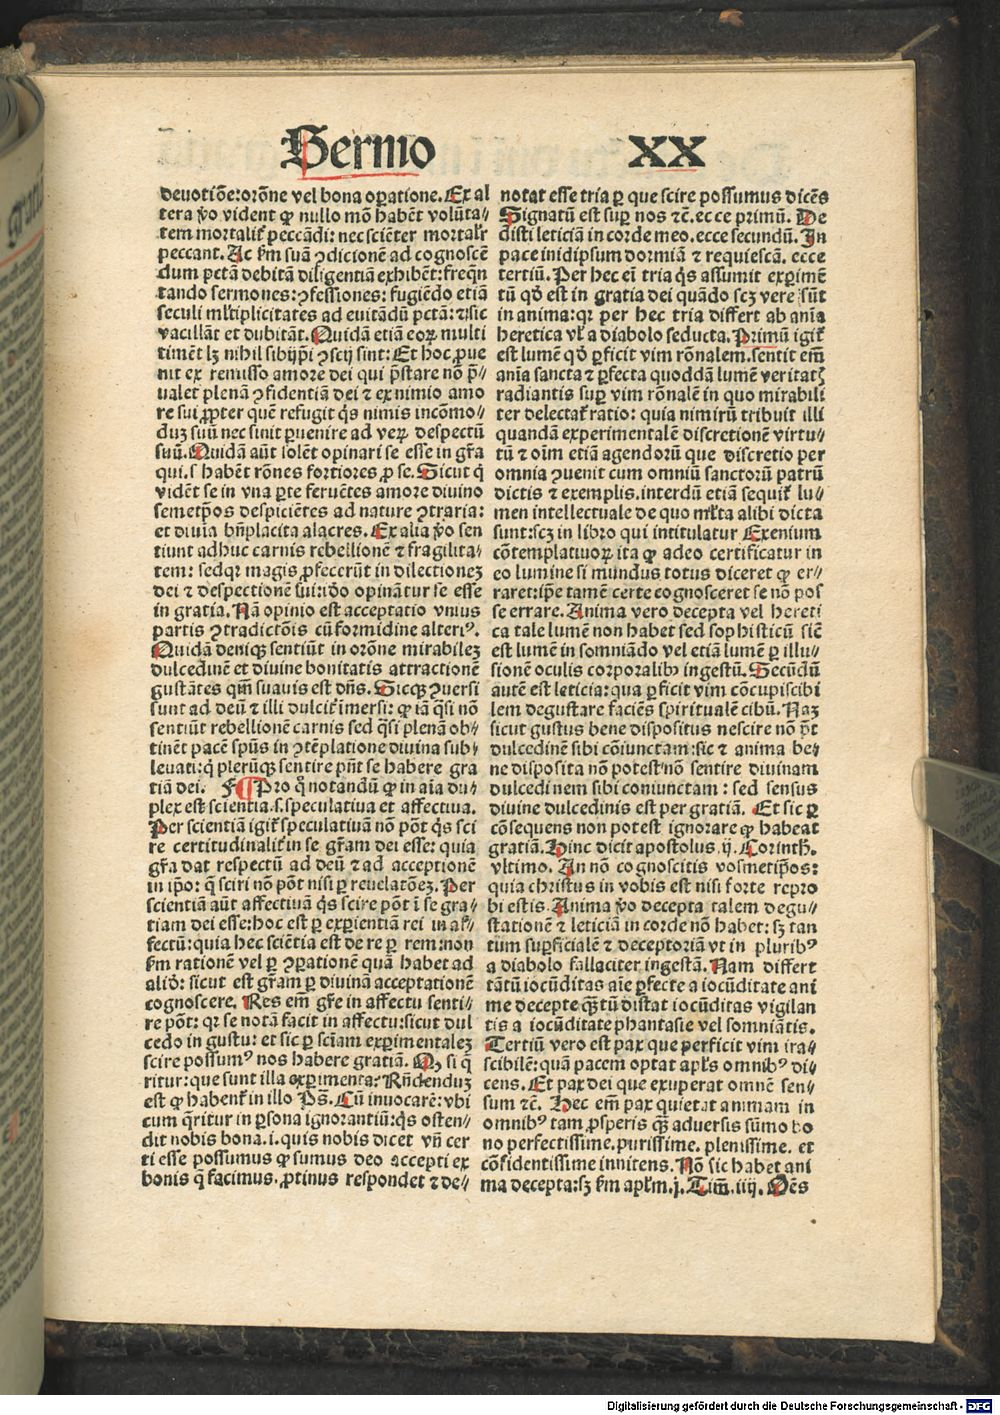 Sermo XX
deuotiōe:orōne vel bona oꝑatione. Ex al
tera v̄o vident ꝙ nullo mō habēt volūta⸗
tem mortalit̄ peccādi: nec sciēter mortalr̄
peccant. Ac ẜm suā ꝯdicionē ad cognoscē
dum pctā debitā diligentiā exhibēt: freqn̄
tando sermones: ꝯfessiones: fugiēdo etiā
seculi ml̄tiplicitates ad euitādū pctā: ⁊ sic
vacillāt et dubitāt. Quidā etiā eoꝝ multi
timēt lꝫ nihil sibijpīs ꝯscij sint: Et hoc ꝓue
nit ex remisso amore dei qui p̄stare nō p̄⸗
ualet plenā ꝯfidentiā dei ⁊ ex nimio amo
re sui ꝓpter quē refugit q̄s nimis incōmo⸗
duꝫ suū nec sinit ꝑuenire ad veꝝ despectū
suū. Quidā aūt solēt opinari se esse in gr̄a
qui.s habēt rōnes fortiores ꝓ se. Sicut q̄
vidēt se in vna ꝑte feruētes amore diuino
semetp̄os despiciētes ad nature ꝯtraria:
et diuīa bn̄placita alacres. Ex alia v̄o sen
tiunt adhuc carnis rebellionē ⁊ fragilita⸗
tem: sedqꝛ magis ꝓfecerūt in dilectioneꝫ
dei ⁊ despectionē sui: iōo opinātur se esse
in gratia. Nā opinio est acceptatio vnius
partis ꝯtradictōis cū formidine alteriꝰ.
Quidā deniqꝫ sentiūt in orōne mirabileꝫ
dulcedinē et diuine bonitatis attractionē
gustātes qm̄ suauis est dn̄s. Sicqꝫ ꝯuersi
sunt ad deū ⁊ illi dulcit̄ imersi: ꝙ iā q̄si nō
sentiūt rebellionē carnis sed q̄si plenā ob⸗
tinēt pacē spūs in ꝯtēplatione diuina sub⸗
leuati: q̄ pleriqꝫ sentire pn̄t se habere gra
tiā dei. F ¶ Pro q̄ notandū ꝙ in aīa du⸗
plex est scientia.s. speculatiua et affectiua.
Per scientiā igit̄ speculatiuā nō pōt q̄s sci
re certitudinalit̄ in se gr̄am dei esse: quia
gr̄a dat respectū ad deū ⁊ ad acceptionē
in ip̄o: q̄ sciri nō pōt nisi ꝑ reuelatōeꝫ. Per
scientiā aūt affectiuā q̄s scire pōt ī se gra⸗
tiam dei esse: hoc est ꝑ exꝑientiā rei in af⸗
fectū: quia hec sciētia est de re ꝑ rem: non
ẜm rationē vel ꝑ ꝯꝑationē quā habet ad
aliō: sicut est gr̄am ꝑ diuinā acceptationē
cognoscere. Res em̄ gr̄e in affectu senti⸗
re pōt: qꝛ se notā facit in affectu: sicut dul
cedo in gustu: et sic ꝑ sciam exꝑimentaleꝫ
scire possumꝰ nos habere gratiā. Qꝫ si q̄
ritur: que sunt illa exꝑimenta? Rn̄denduꝫ
est ꝙ habent̄ in illo Ps̄. Cū inuocarē: vbi
cum q̄ritur in ꝑsona ignorantiū: q̄s osten⸗
dit nobis bona .i. quis nobis dicet vn̄ cer
ti esse possumus ꝙ sumus deo accepti ex
bonis q̄ facimus. ꝓtinus respondet ⁊ de⸗
notat esse tria ꝑ que scire possumus dicēs
Signatū est suꝑ nos ⁊c̄. ecce primū. De
disti leticiā in corde meo. ecce secundū. In
pace in idipsum dormiā ⁊ requiescā. ecce
tertiū. Per hec em̄ tria q̄s assumit exꝑimē
tū qd̄ est in gratia dei quādo scꝫ vere sūt
in anima: qꝛ per hec tria differt ab anīa
heretica vl̄ a diabolo seducta. Primū igit̄
est lumē qd̄ ꝑficit vim rōnalem. sentit em̄
anīa sancta ⁊ ꝑfecta quoddā lumē veritatꝭ
radiantis suꝑ vim rōnalē in quo mirabili
ter delectat̄ ratio: quia nimirū tribuit illi
quandā experimentalē discretionē virtu⸗
tū ⁊ oīm etiā agendorū que discretio per
omnia ꝯuenit cum omniū sanctorū patrū
dictis ⁊ exemplis. interdū etiā sequit̄ lu⸗
men intellectuale de quo ml̄ta alibi dicta
sunt: scꝫ in libro qui intitulatur Exenium
cōtemplatiuoꝝ ita ꝙ adeo certificatur in
eo lumine si mundus totus diceret ꝙ er⸗
raret: ip̄e tamē certe cognosceret se nō pos
se errare. Anima vero decepta vel hereti
ca tale lumē non habet sed sophisticū sic̄
est lumē in somniādo vel etiā lumē ꝑ illu⸗
sionē oculis corporalibꝫ ingestū. Secūdū
autē est leticia: qua ꝑficit vim cōcupiscibi
lem degustare faciēs spiritualē cibū. Naꝫ
sicut gustus bene dispositus nescire nō pōt
dulcedinē sibi cōiunctam: sic ⁊ anima be⸗
ne disposita nō potest nō sentire diuinam
dulcedinem sibi coniunctam: sed sensus
diuine dulcedinis est per gratiā. Et sic ꝑ
cōsequens non potest ignorare ꝙ habeat
gratiā. Hinc dicit apostolus .ij. Corinth.
vltimo. An nō cognoscitis vosmetip̄os:
quia christus in vobis est nisi forte repro
bi estis. Anima v̄o decepta talem degu⸗
stationē ⁊ leticiā in corde nō habet: sꝫ tan
tum suꝑficialē ⁊ deceptoriā vt in pluribꝰ
a diabolo fallaciter ingestā. Nam differt
tātū iocūditas aīe ꝑfecte a iocūditate ani
me decepte qꝫtū distat iocūditas vigilan
tis a iocūditate phantasie vel somniātis.
Tertiū vero est pax que perficit vim ira⸗
scibilē: quā pacem optat apl̄s omnibꝰ di⸗
cens. Et pax dei que exuperat omnē sen⸗
sum ⁊c̄. Hec em̄ pax quietat animam in
omnibꝰ tam ꝓsperis qꝫ aduersis sūmo bo
no perfectissime. purissime. plenissime. et
cōfidentissime innitens. Nō sic habet ani
ma decepta: sꝫ ẜm apl̄m .j. Tim̄. iiij. Oēs
Digitalisierung gefördert durch die Deutsche Forschungsgemeinschaft - DFG